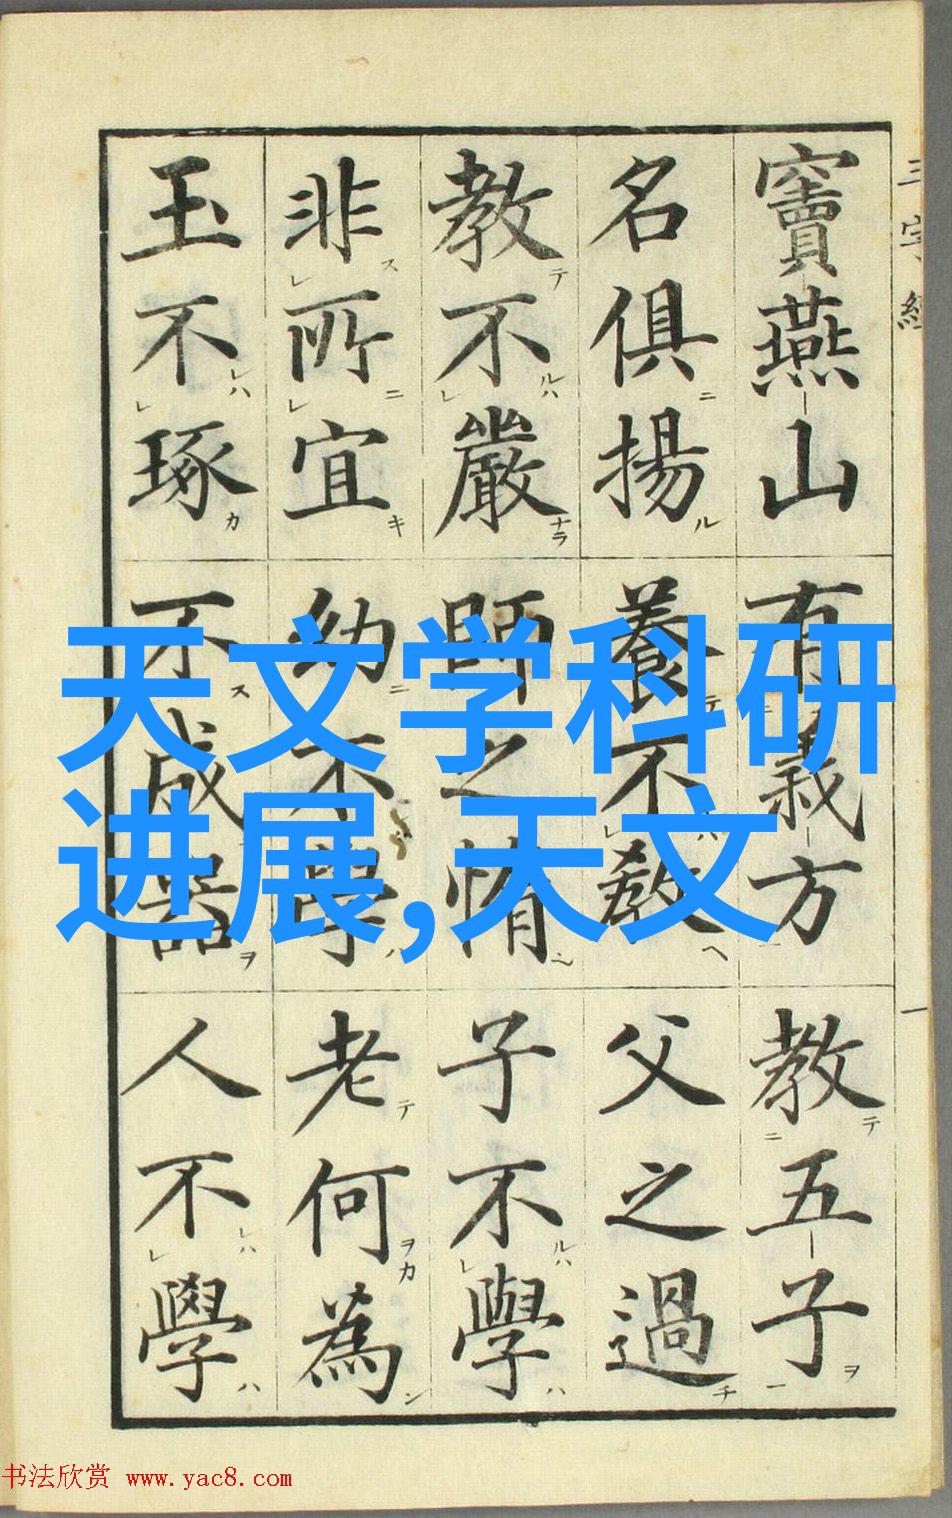 三字經 一
竇燕山 有義方 教五子
名俱揚 養不教 父之過
教不嚴 師之惰 子不學
非所宜 幼不學 老何為
玉不琢 不成器 人不學
天文学科研
进展,天文
书法欣赏 www.yac8.com